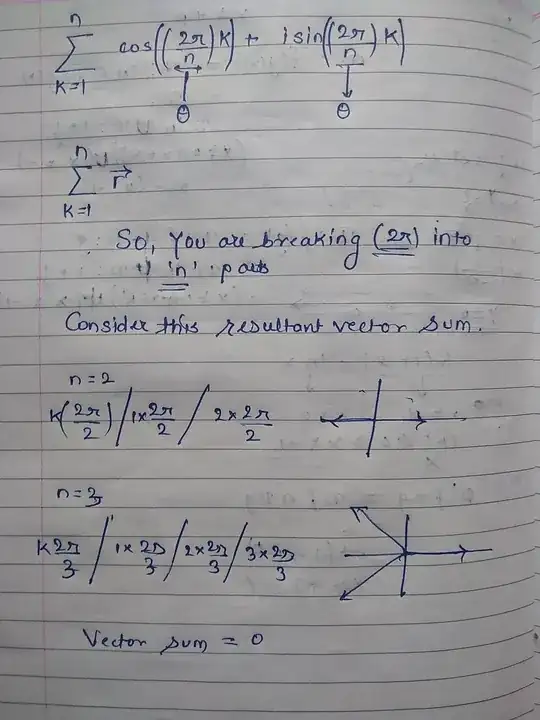 n
∑ cos((2π/n)K) + i sin((2π/n)K)
K=1
θ θ
n
∑ r⃗
K=1
So, You are breaking (2π) into
'n' parts
Consider this resultant vector sum.
n=2
K(2π/2) / 1×2π/2 / 2×2π/2
n=3
K2π/3 / 1×2π/3 / 2×2π/3 / 3×2π/3
Vector sum = 0